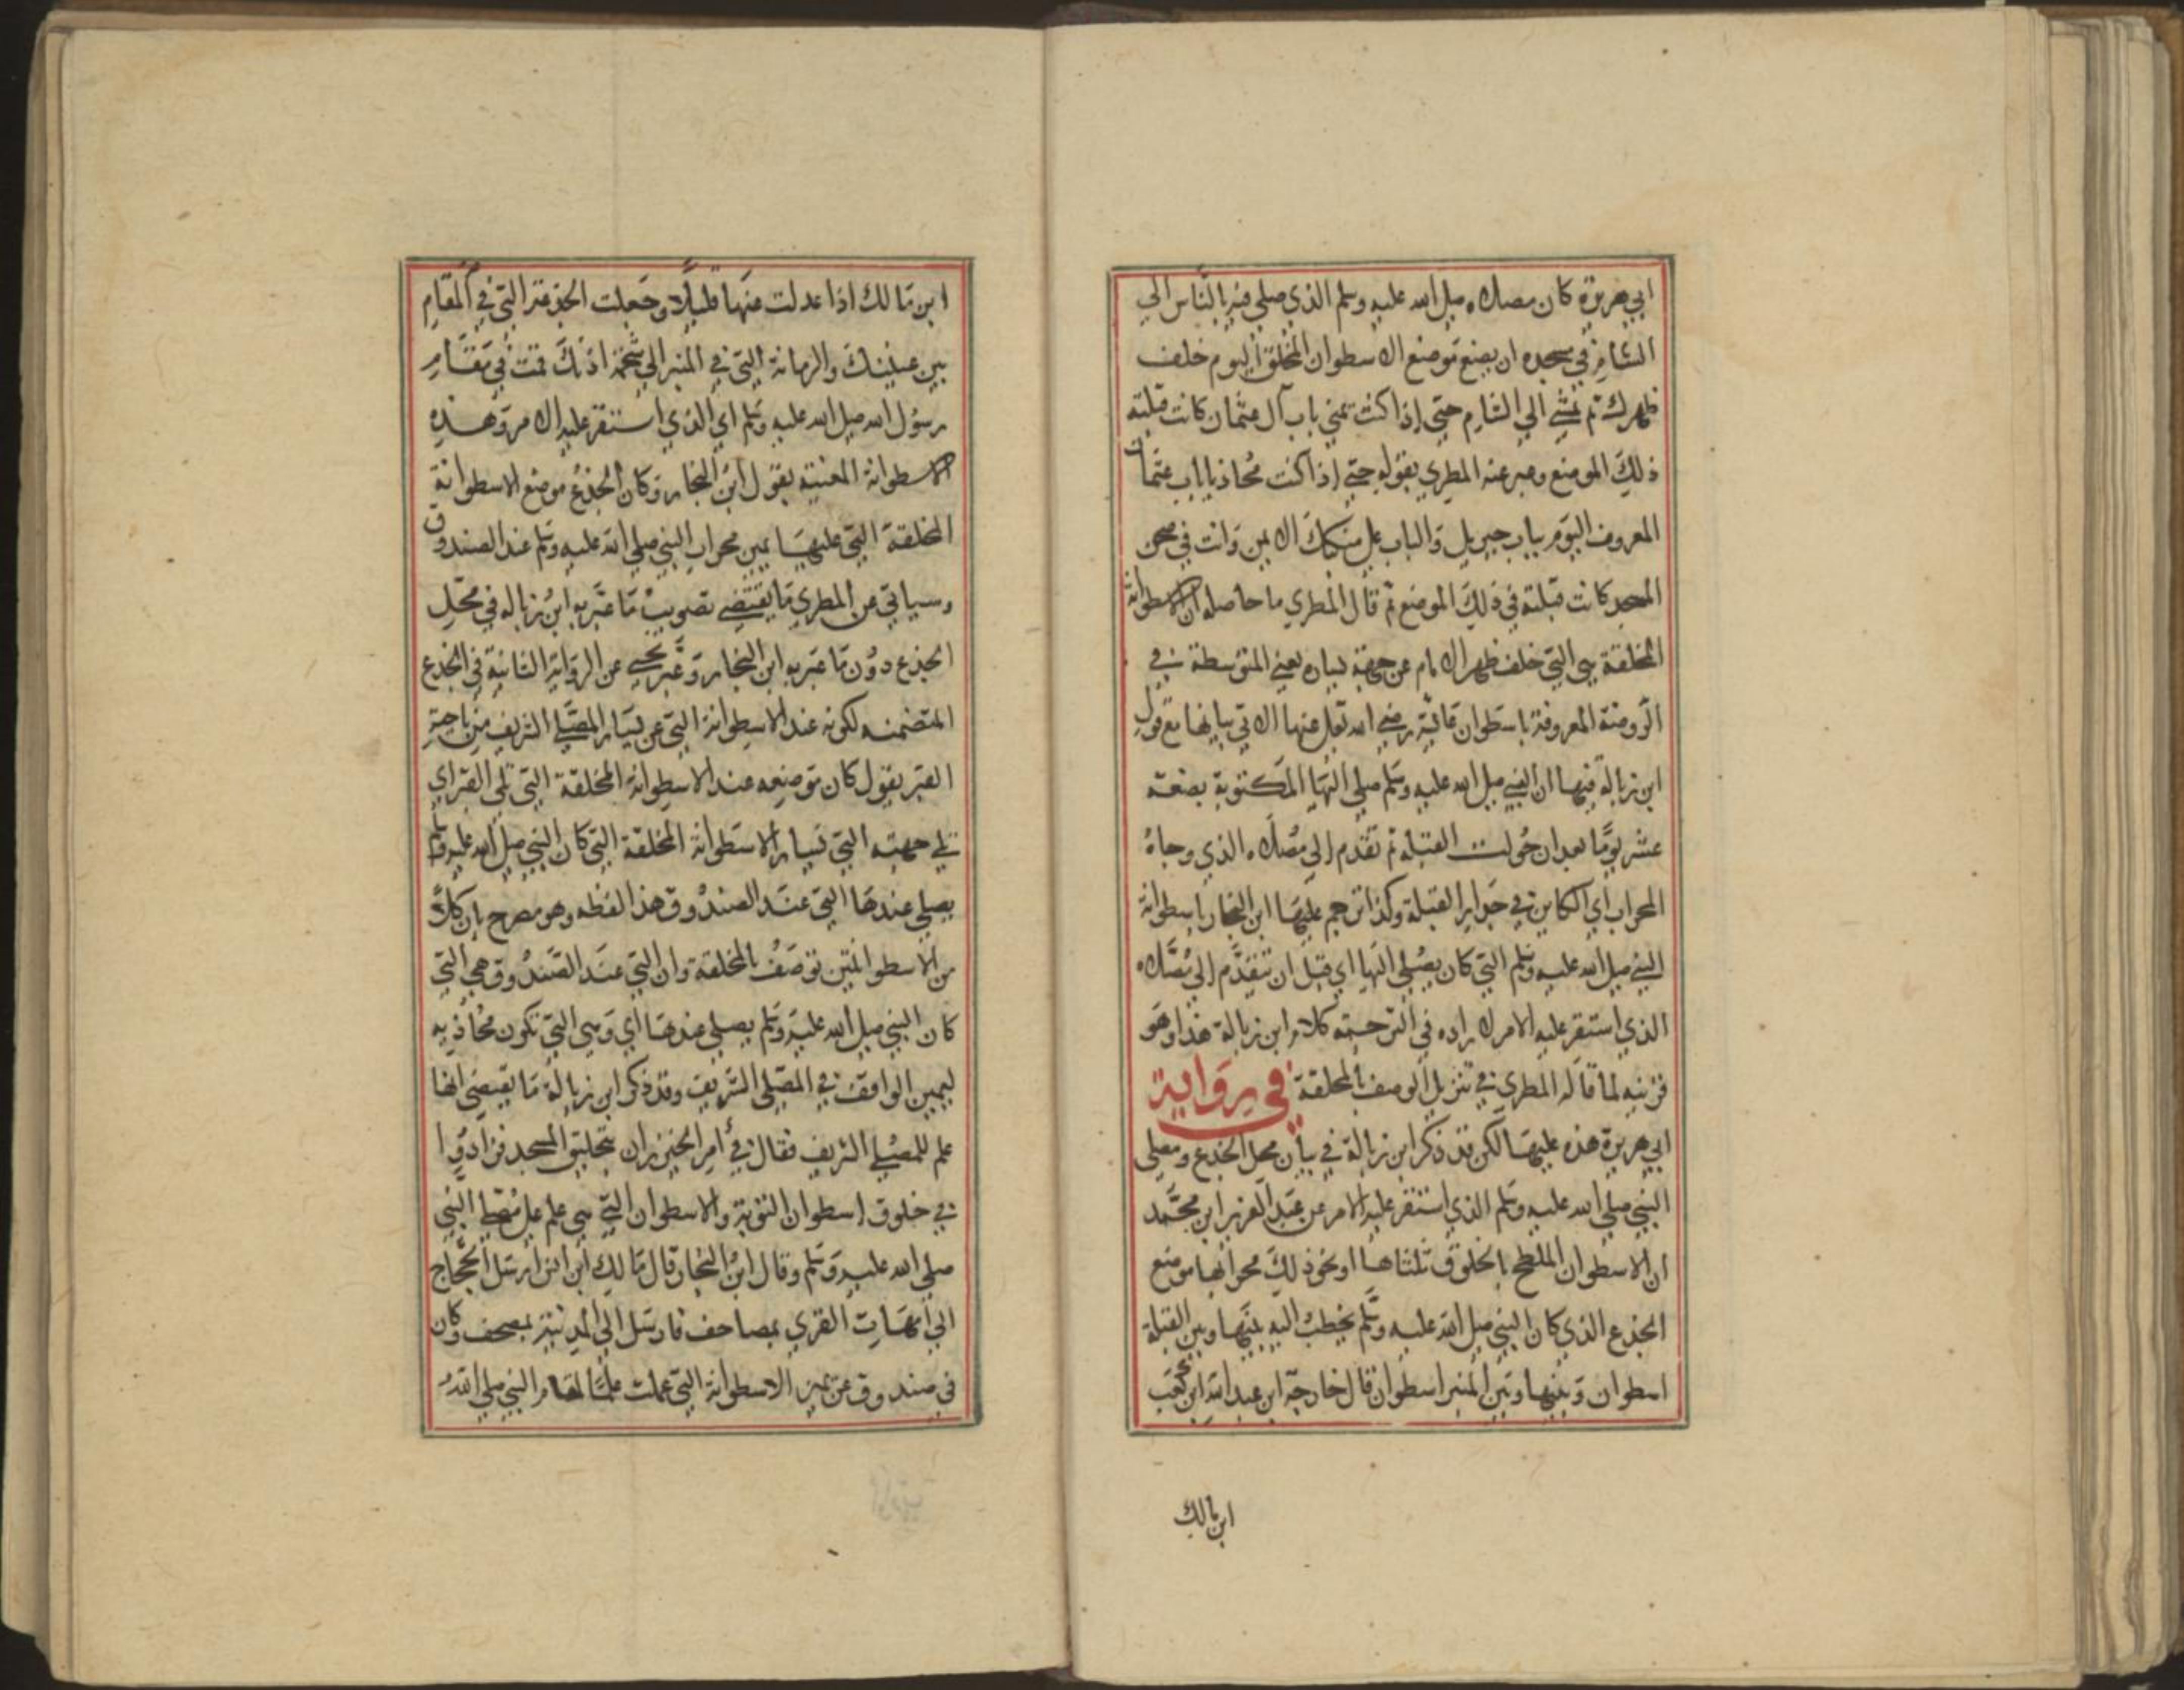 ابي هريرة كان مصلاه صلي الله عليه وسلم الذي صلي فيه بالناس الي
الشام في مسجده ان يضع موضع الاسطوان المخلق اليوم خلف
ظهرك ثم تمشي الي الشام حتي اذا كنت بيمني باب آل عثمان كانت قبلته
ذلك الموضع وعبر عنه المطري بقوله حتي اذا كنت محاذيا باب عثمان
المعروف اليوم بباب جبريل والباب علي منكبك الايمن وانت في صحن
المسجد كانت قبلته في ذلك الموضع ثم قال المطري ما حاصله ان الاسطوانة
المخلقة هي التي خلف ظهر الامام عن جهة يساره يعني المتوسطة في
الروضة المعروفة باسطوان عائشة رضي الله تعالي عنها الآتي بيانها مع قول
ابن زبالة فيها ان النبي صلي الله عليه وسلم صلي اليها المكتوبة بضعة
عشر يوما بعد ان حولت القبلة ثم تقدم الي مصلاه الذي وجاه
المحراب اي الكاين في جدار القبلة وكذا ترجم عليها ابن النجار باسطوانة
النبي صلي الله عليه وسلم التي كان يصلي اليها اي قبل ان يتقدم الي مصلاه
الذي استقر عليه الامر لايراده في الترجمة كلام ابن زبالة هذا وهو
قرينه لما قاله المطري في تنزيل الوصف بالمخلقة في رواية
ابي هريرة هذه عليها لكن قد ذكر ابن زبالة في بيان محل الجذع ومصلي
النبي صلي الله عليه وسلم الذي استقر عليه الامر عن عبد العزيز ابن محمد
ان الاسطوان الملطخ بالخلوق ثلثاها او نحو ذلك محرابها موضع
الجذع الذي كان النبي صلي الله عليه وسلم يخطب اليه بينها وبين القبلة
اسطوان وبينها وبين المنبر اسطوان قال خارجة ابن عبد الله ابن كعب
ابن مالك
ابن مالك اذا عدلت عنها قليلا وجعلت الجزعة التي في المقام
بين عينيك والرمانة التي في المنبر الي شحمة اذنك قمت في مقام
رسول الله صلي الله عليه وسلم اي الذي استقر عليه الامر وهذه
الاسطوانة المعنية بقول ابن النجار وكان الجذع موضع الاسطوانة
المخلقة التي عليها يمين محراب النبي صلي الله عليه وسلم عند الصندوق
وسيأتي عن المطري ما يقتضي تصويب ما عبر به ابن زباله في محل
الجذع دون ما عبر به ابن النجار وعبر يحيي عن الرواية الثانية في الجذع
المتضمنه لكونه عند الاسطوانة التي عن يسار المصلي الشريف من ناحية
القبر بقوله كان موضعه عند الاسطوانة المخلقة التي تلي القبر اي
تلي جهته التي يسار الاسطوانة المخلقة التي كان النبي صلي الله عليه وسلم
يصلي عندها التي عند الصندوق هذا لفظه وهو مصرح بان كلا
من الاسطوانتين توصف بالمخلقة وان التي عند الصندوق هي التي
كان النبي صلي الله عليه وسلم يصلي عندها اي وهي التي تكون محاذيه
ليمين الواقف في المصلي الشريف وقد ذكر ابن زبالة ما يقتضي انها
علم للمصلي الشريف فقال في امر الخيزران بتخليق المسجد فزادوا
في خلوق اسطوان التوبة والاسطوان التي هي علم علي مصلي النبي
صلي الله عليه وسلم وقال ابن النجار قال مالك ابن انس ارسل الحجاج
الي امهات القري بمصاحف فارسل الي المدينة بمصحف وكان
في صندوق عن يمين الاسطوانة التي عملت علما لمقام النبي صلي الله